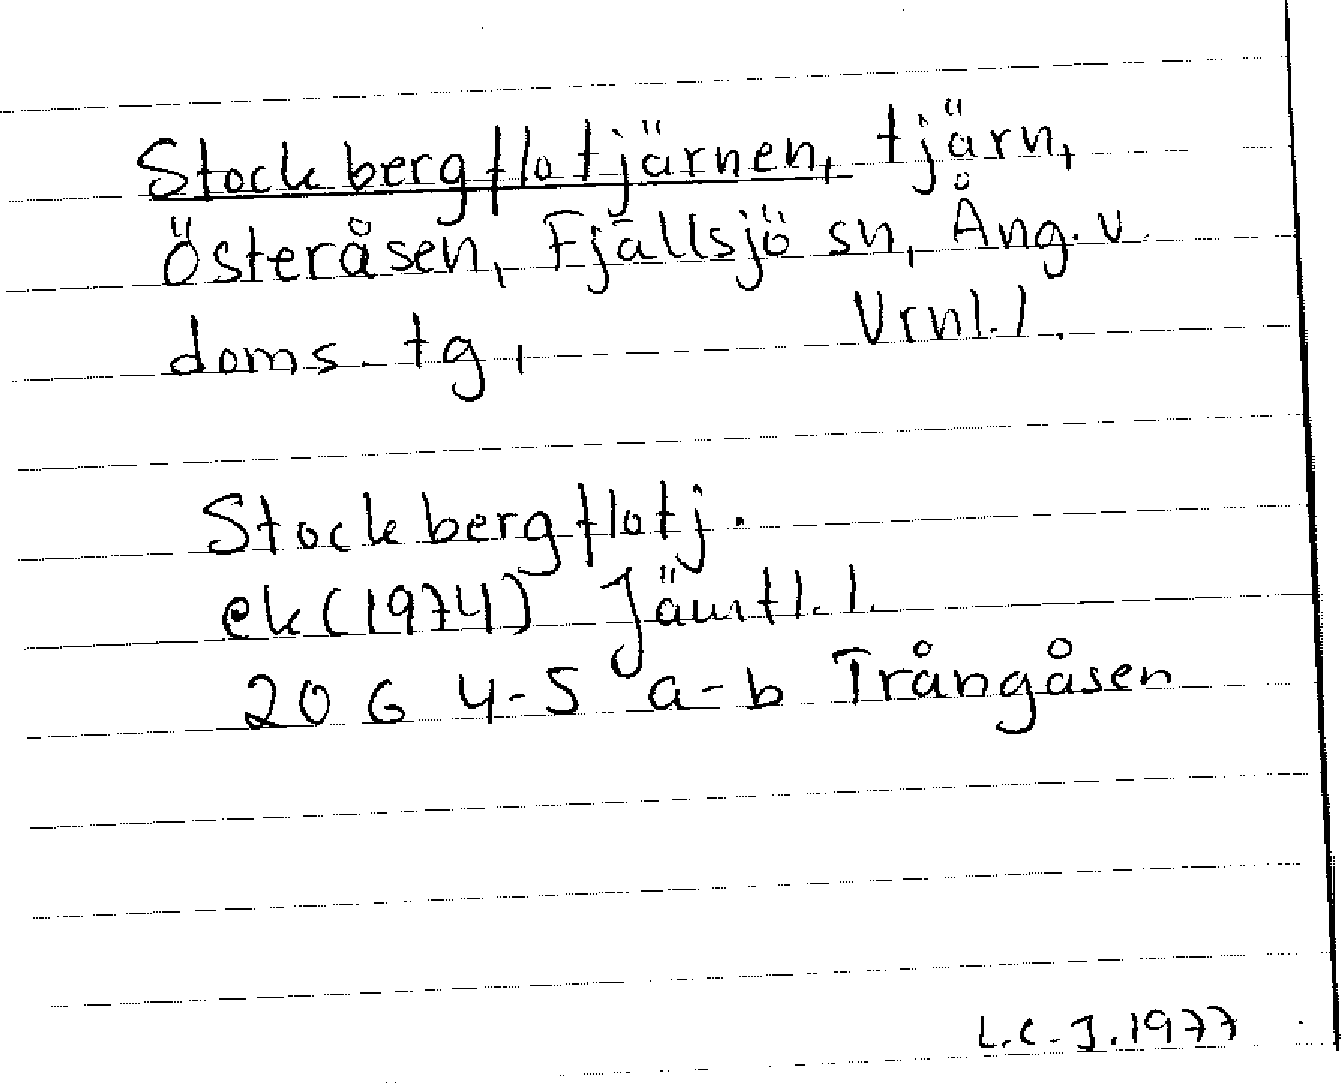 Stockbergflotjärnen, tjärn,
Österåsen, Fjällsjö sn, Ång. v.
doms.tg, Vrnl.l.
Stockbergflotj.
ek (1974) Jämtl.l.
20 G 4-5 a-b Trångåsen
L.C.J. 1977